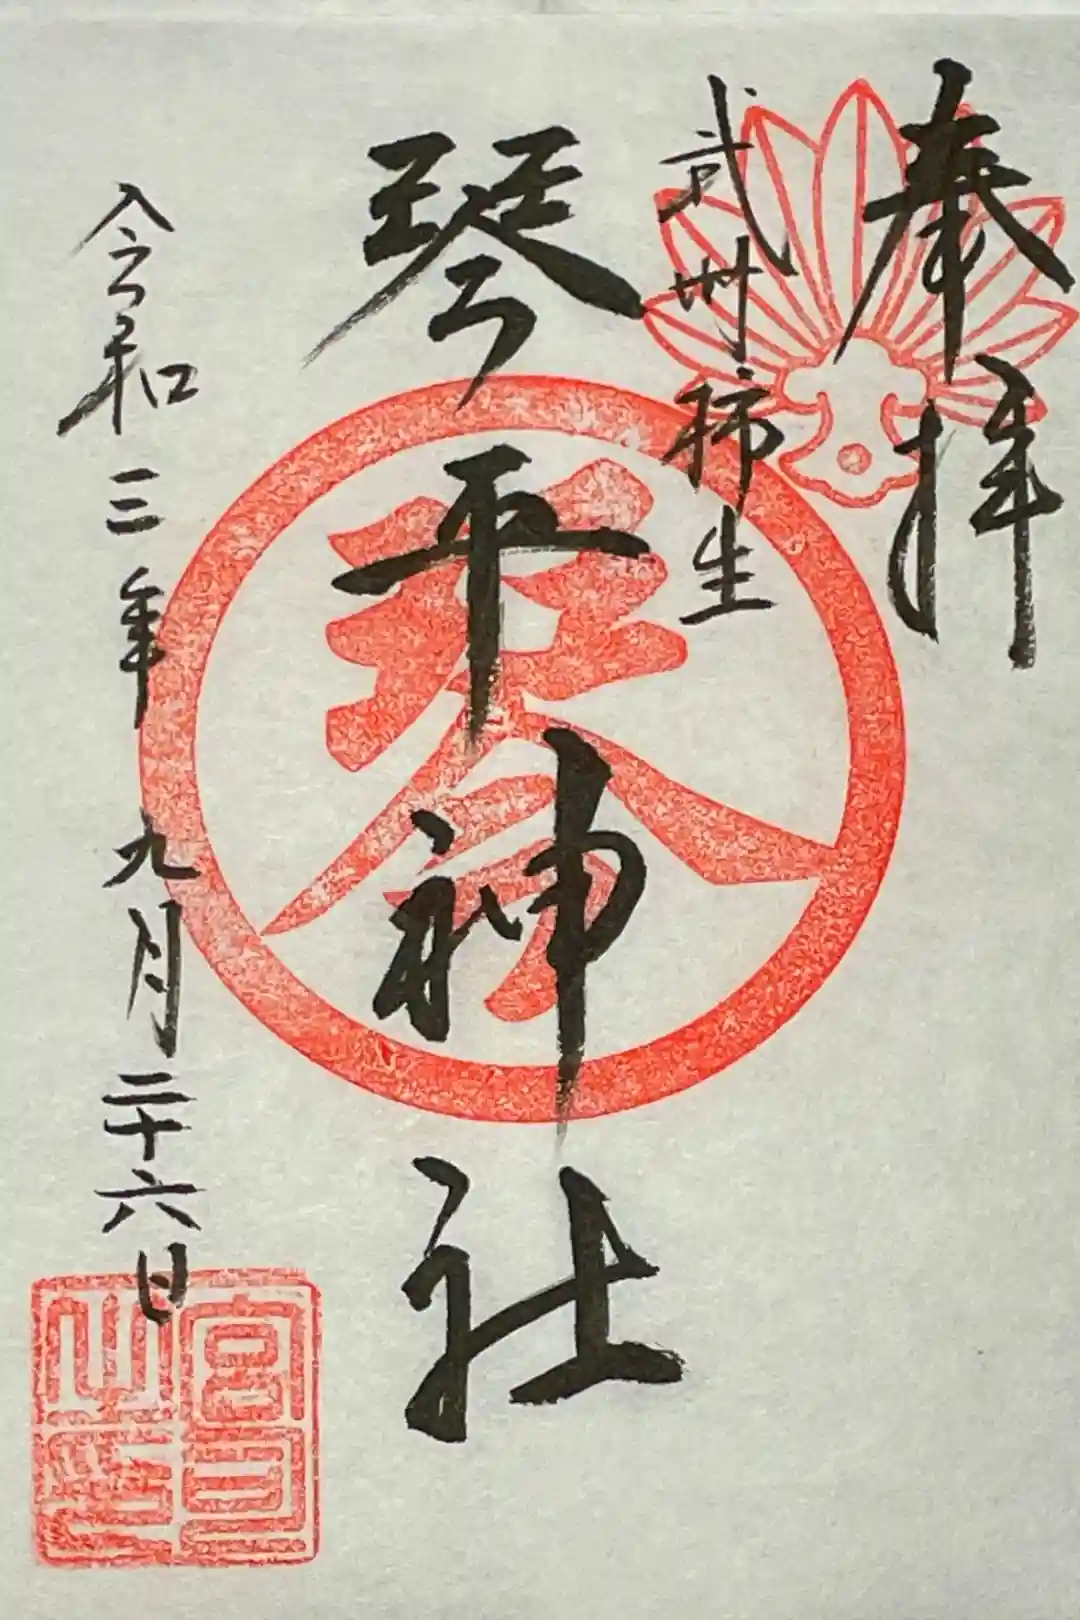 奉拝
武州柿生
琴平神社
琴
令和三年九月二十六日
宮司
之印